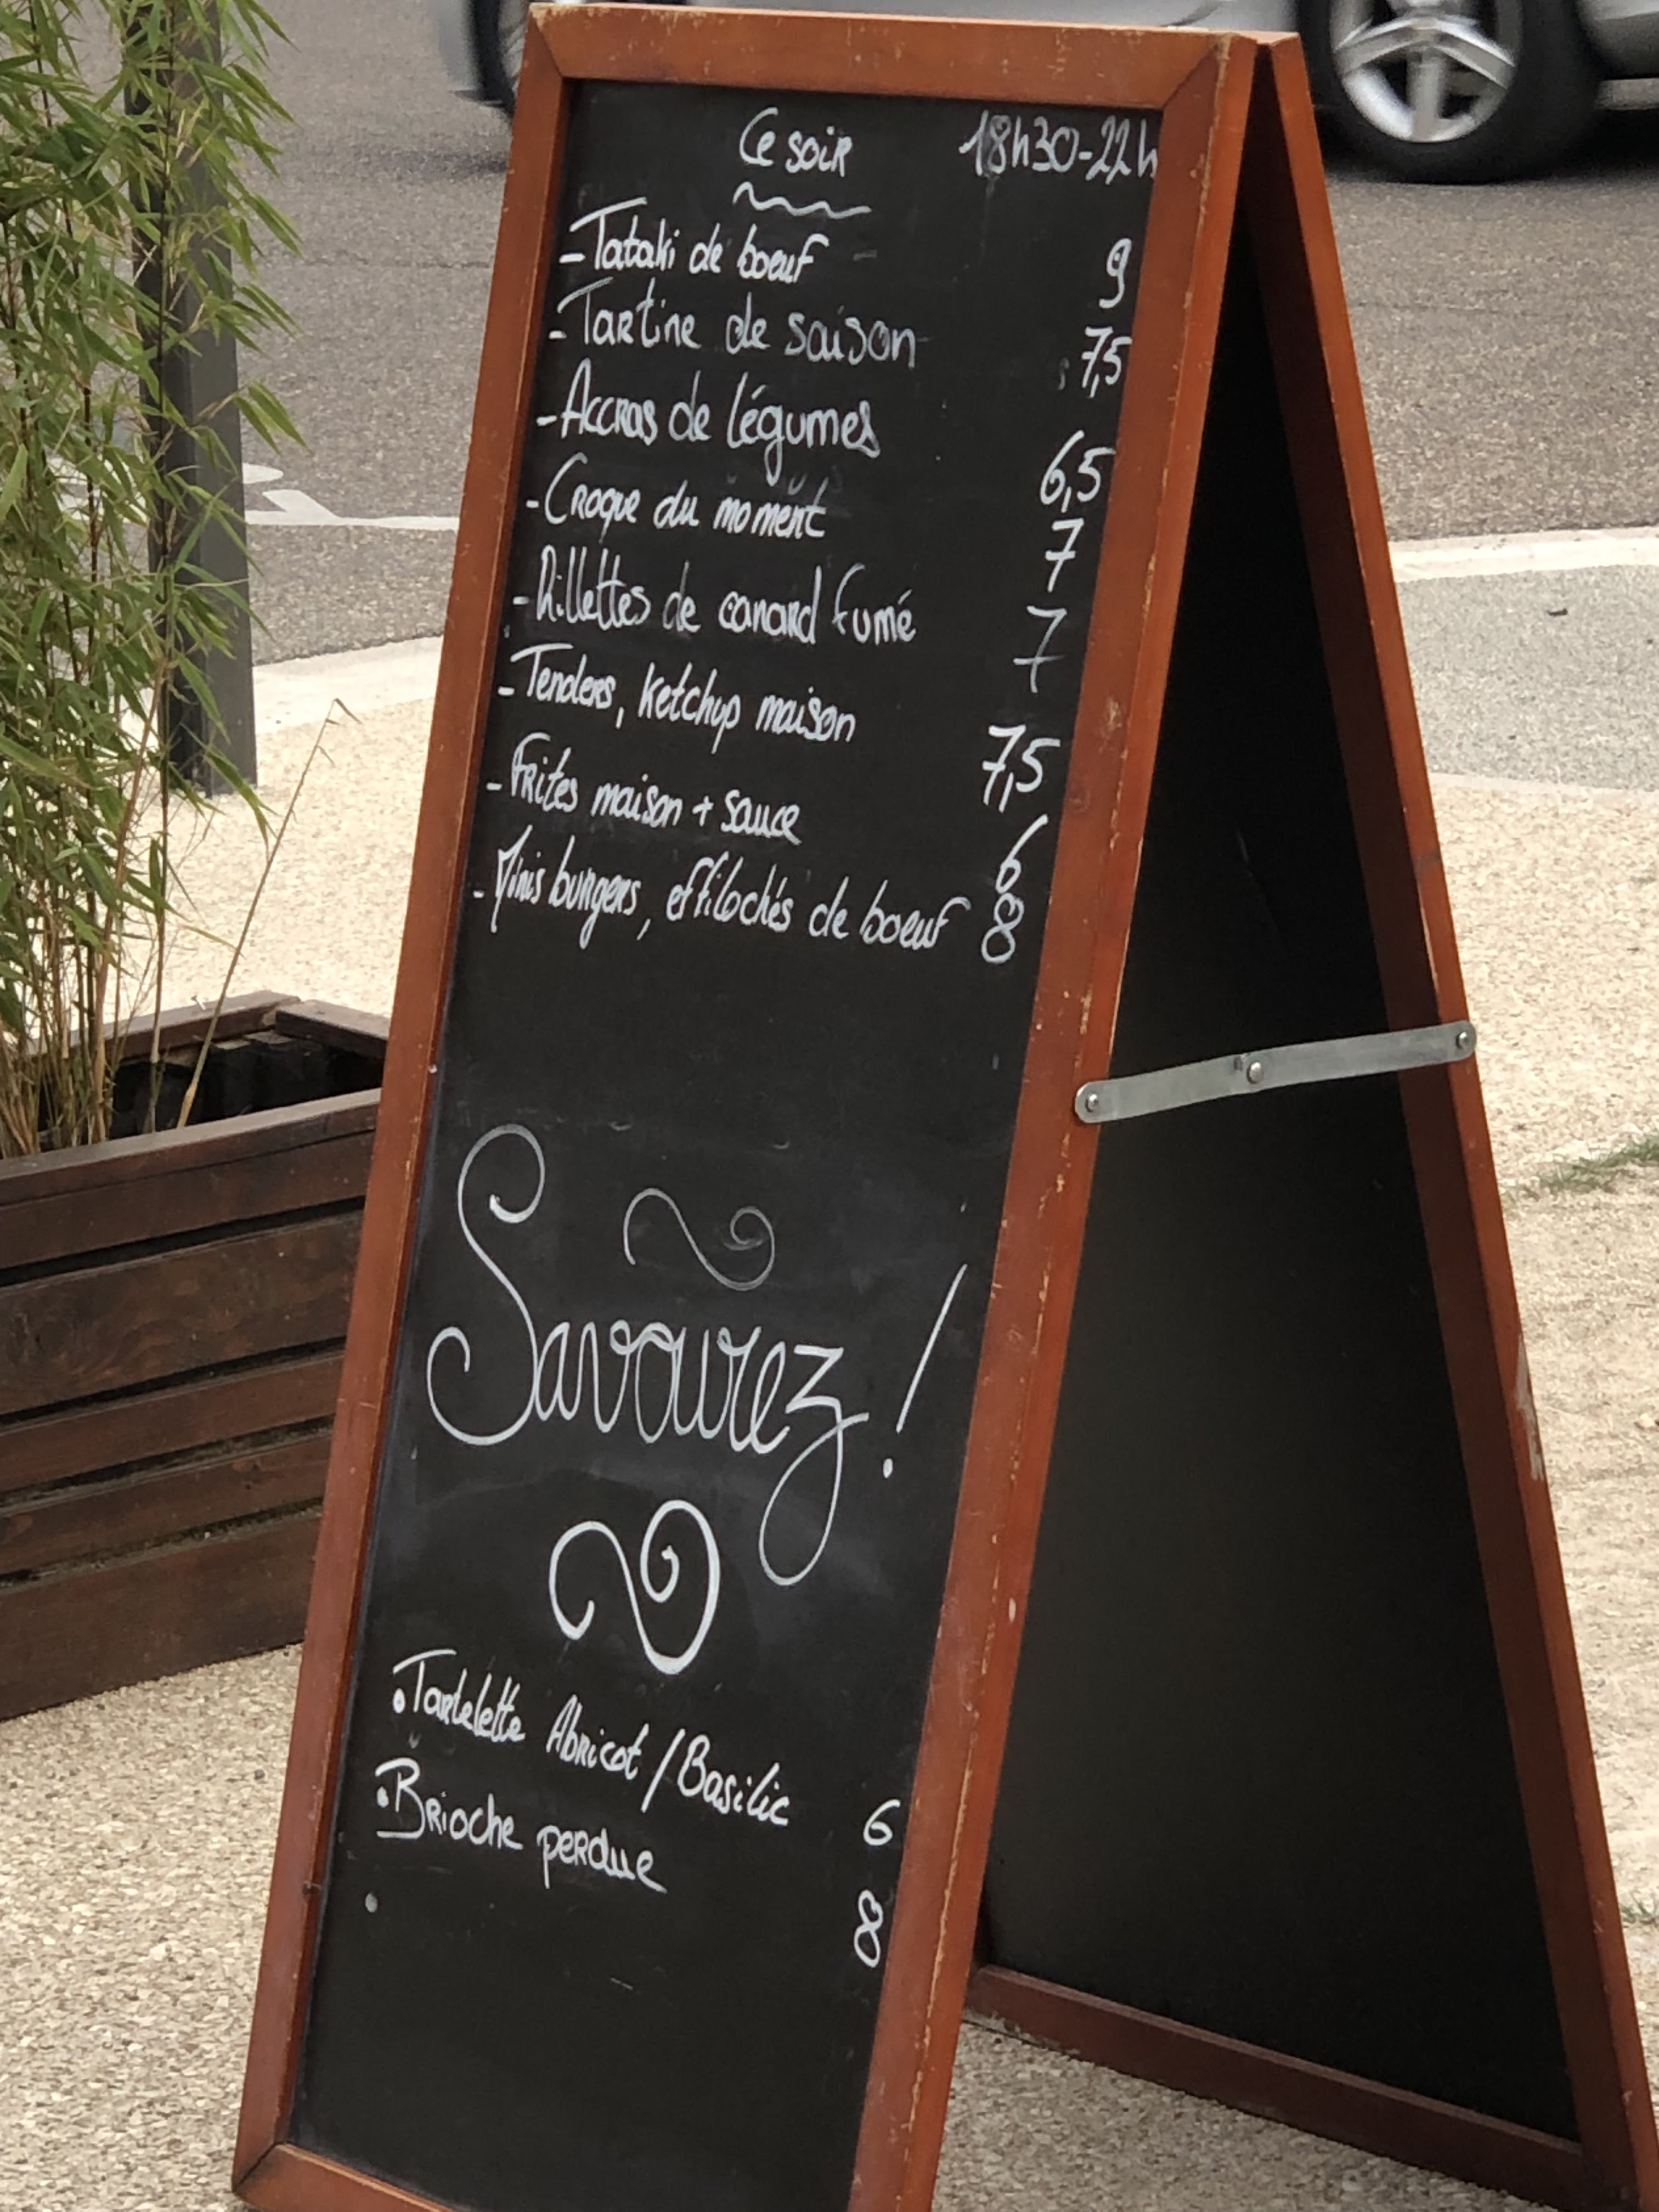 Ce soir 18h30-22h
- Tataki de boeuf 9
- Tartine de saison 7,5
- Accras de légumes 6,5
- Croque du moment 7
- Rillettes de canard fumé 7
- Tenders, ketchup maison 7,5
- Frites maison + sauce 6
- Minis burgers, effilochés de boeuf 8
Savourez !
• Tartelette Abricot / Basilic 6
• Brioche perdue 8